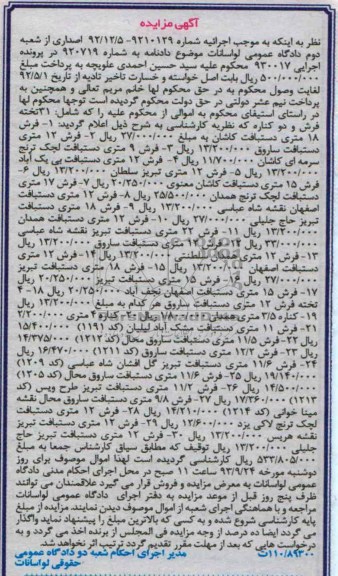 آگهی مزایده
نظر به اینکه به موجب اجرائیه شماره ۹۳۱۰۱۲۹- ۹۲/۱۲/۵ اصداری از شعبه
دوم دادگاه عمومی لواسانات موضوع دادنامه به شماره ۹۲۰۷۱۹ در پرونده
اجرایی ۹۳۰۰۱۷ محکوم علیه سید حسین احمدی علویچه به پرداخت مبلغ
۵۰۰/۰۰۰/۰۰۰ ریال بابت اصل خواسته و خسارت تاخیر تادیه از تاریخ ۹۲/۵/۱
لغایت وصول محکوم به در حق محکوم لها خانم مریم تعالی و همچنین به
پرداخت نیم عشر دولتی در حق دولت محکوم گردیده است توجها محکوم لها
در راستای استیفای محکوم به اموالی از محکوم علیه را که شامل: ۳۱تخته
فرش و دو کناره که نظریه کارشناسی به شرح ذیل اعلام گردید: ۱- فرش
۱۸ متری دستبافت کاشان به مبلغ ۲۷/۰۰۰/۰۰۰ ریال ۲- فرش ۱۲ متری
دستبافت ساروق ۱۳/۲۰۰/۰۰۰ ریال ۳- فرش ۹ متری دستبافت لچک ترنج
سرمه ای کاشان ۱۱/۷۰۰/۰۰۰ ریال ۴- فرش ۱۲ متری دستبافت بی بک آباد
۱۳/۲۰۰/۰۰۰ ریال ۵- فرش ۱۲ متری تبریز سلطان ۱۳/۲۰۰/۰۰۰ ریال ۶-
فرش ۱۵ متری دستبافت کاشان معنوی ۲۰/۲۵۰/۰۰۰ ریال ۷- فرش ۱۷ متری
دستبافت لچک ترنج همدان ۲۵/۵۰۰/۰۰۰ ریال ۸- فرش ۱۲ متری دستبافت
اصفهان نقشه شاه عباسی ۱۳/۲۰۰/۰۰۰ ریال ۹- فرش ۱۸ متری دستبافت
تبریز حاج جلیلی ۲۷/۰۰۰/۰۰۰ ریال ۱۰- فرش ۱۲ متری دستبافت همدان
۱۳/۲۰۰/۰۰۰ ریال ۱۱- فرش ۲۲ متری دستبافت تبریز نقشه شاه عباسی
۳۳/۰۰۰/۰۰۰ ریال ۱۲- فرش ۱۲ متری دستبافت ساروق ۱۳/۲۰۰/۰۰۰ ریال
۱۳- فرش ۱۲ متری سلطنتی ۱۳/۲۰۰/۰۰۰ ریال ۱۴- فرش ۱۲ متری
دستبافت اصفهان ۱۳/۲۰۰/۰۰۰ ریال ۱۵- فرش ۱۸ متری دستبافت تبریز
۲۷/۰۰۰/۰۰۰ ریال ۱۶- فرش ۱۵ متری دستبافت تبریز ۲۰/۲۵۰/۰۰۰ ریال
۱۷- فرش ۱۵ متری دستبافت اصفهان نجف آباد ۲۰/۲۵۰/۰۰۰ ریال ۱۸- ۴
تخته فرش ۱۲ متری دستبافت ساروق هر کدام به مبلغ ۱۳/۲۰۰/۰۰۰ ریال
۱۹- کناره ۳/۵ متری همدان ریال ۲۰- کناره ۴ متری ۲/۲۰۰/۰۰۰
۲۱- فرش ۱۱ متری دستبافت مشک آباد لیلیان (کد ۱۱۹۱) ۱۵/۴۰۰/۰۰۰
ریال ۲۲- فرش ۱۱/۵ متری دستبافت ساروق محال (کد ۱۲۱۲) ۱۴/۳۷۵/۰۰۰
ریال ۲۳- فرش ۱۲/۲ متری دستبافت ساروق (کد ۱۲۱۱) ۱۶/۴۷۰/۰۰۰ ریال
۲۴- فرش ۱۱/۶ متری دستبافت تبریز گل افشان شاه عباسی (کد ۱۲۰۹)
۱۹/۱۴۰/۰۰۰ ریال ۲۵- فرش ۱۱/۶ متری دستبافت ساروق محال (کد ۱۲۰۵)
۱۴/۵۰۰/۰۰۰ ریال ۲۶- فرش ۱۱/۲ متری دستبافت تبریز طرح ویس (کد
۱۲۱۳) ۱۷/۳۶۰/۰۰۰ ریال ۲۷- فرش ۹/۸ متری دستبافت ساروق محال نقشه
مینا خوانی (کد ۱۲۱۴) ۱۴/۲۱۰/۰۰۰ ریال ۲۸- فرش ۱۲ متری دستبافت
لچک ترنج لاکی یزد ۱۲/۶۰۰/۰۰۰ ریال ۲۹- فرش ۱۲ متری دستبافت
نقشه هریس ۱۳/۲۰۰/۰۰۰ ریال ۳۰- فرش ۱۲ متری دستبافت تبریز حاج
جلیلی ۱۳/۲۰۰/۰۰۰ ریال توقیف که مطابق سیاق کارشناس جمعا به مبلغ
۵۳۳/۸۰۵/۰۰۰ ریال کارشناسی گردیده است لهذا اموال موصوف برای روز
دوشنبه مورخه ۹۳/۹/۲۴ ساعت ۱۱ صبح در محل اجرای احکام مدنی دادگاه
عمومی لواسانات به معرض مزایده و فروش قرار می گیرد علاقمندان می توانند
ظرف پنج روز قبل از موعد مزایده به دفتر اجرای دادگاه عمومی لواسانات
مراجعه و با هماهنگی اجرای شعبه از اموال موصوف دیدن نمایند. مزایده از مبلغ
پایه کارشناسی شروع شده و به کسی که بالاترین مبلغ را پیشنهاد نماید واگذار
می گردد ایضا ده درصد از وجه مزایده فی المجلس از برنده اخذ می گردد و به
درخواست هایی که بعد از مهلت مقرر تقدیم گردد ترتیب اثر نخواهد شد.
۱۱۰/۸۹۳۰۰ت
مدیر اجرای احکام شعبه دو دادگاه عمومی
حقوقی لواسانات